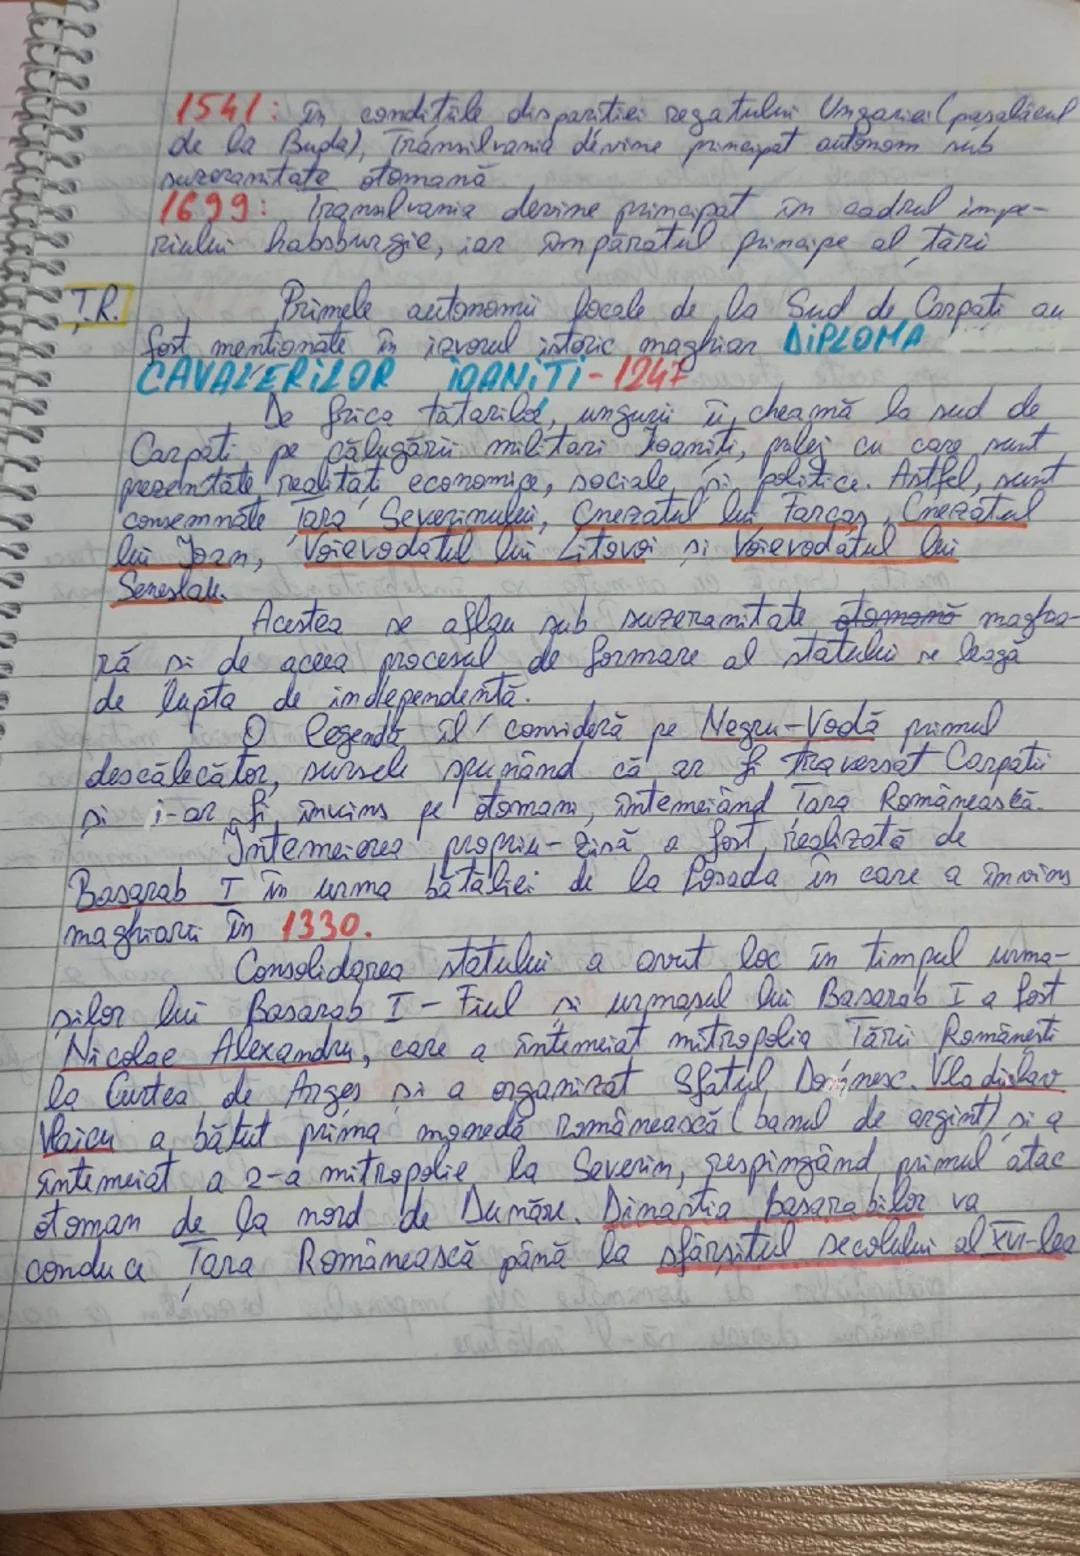 1541: În condițiile dispariției regatului Ungariei (pașalâcul
de la Buda), Transilvania devine principat autonom sub
suzeranitate otomană
1699: Transilvania devine principat în cadrul impe-
riului habsburgic, iar împăratul principe al țării
Ț.R. Primele autonomii locale de la Sud de Carpați au
fost menționate în izvorul istoric maghiar DIPLOMA
CAVALERILOR IOANIȚI - 1247
De frica tătarilor, ungurii îi cheamă la sud de
Carpați pe călugării militari Ioaniți, prilej cu care sunt
prezentate realități economice, sociale și politice. Astfel, sunt
consemnate Țara Severinului, Cnezatul lui Farcaș, Cnezatul
lui Ioan, Voievodatul lui Litovoi și Voievodatul lui
Seneslau.
Acestea se aflau sub suzeranitate otomană maghia-
ră și de aceea procesul de formare al statului se leagă
de lupta de independență.
O legendă îl consideră pe Negru-Vodă primul
descălecător, sursele spunând că ar fi traversat Carpații
și i-ar fi învins pe otomani, întemeiând Țara Românească.
Întemeierea propriu-zisă a fost realizată de
Basarab I în urma bătăliei de la Posada în care a învins
maghiarii în 1330.
Consolidarea statului a avut loc în timpul urma-
șilor lui Basarab I - Fiul și urmașul lui Basarab I a fost
Nicolae Alexandru, care a întemeiat mitropolia Țării Românești
la Curtea de Argeș și a organizat Sfatul Domnesc. Vladislav
Vlaicu a bătut prima monedă românească (banul de argint) și a
întemeiat a 2-a mitropolie la Severin, respingând primul atac
otoman de la nord de Dunăre. Dinastia basarabilor va
conduce Țara Românească până la sfârșitul secolului al XVI-lea